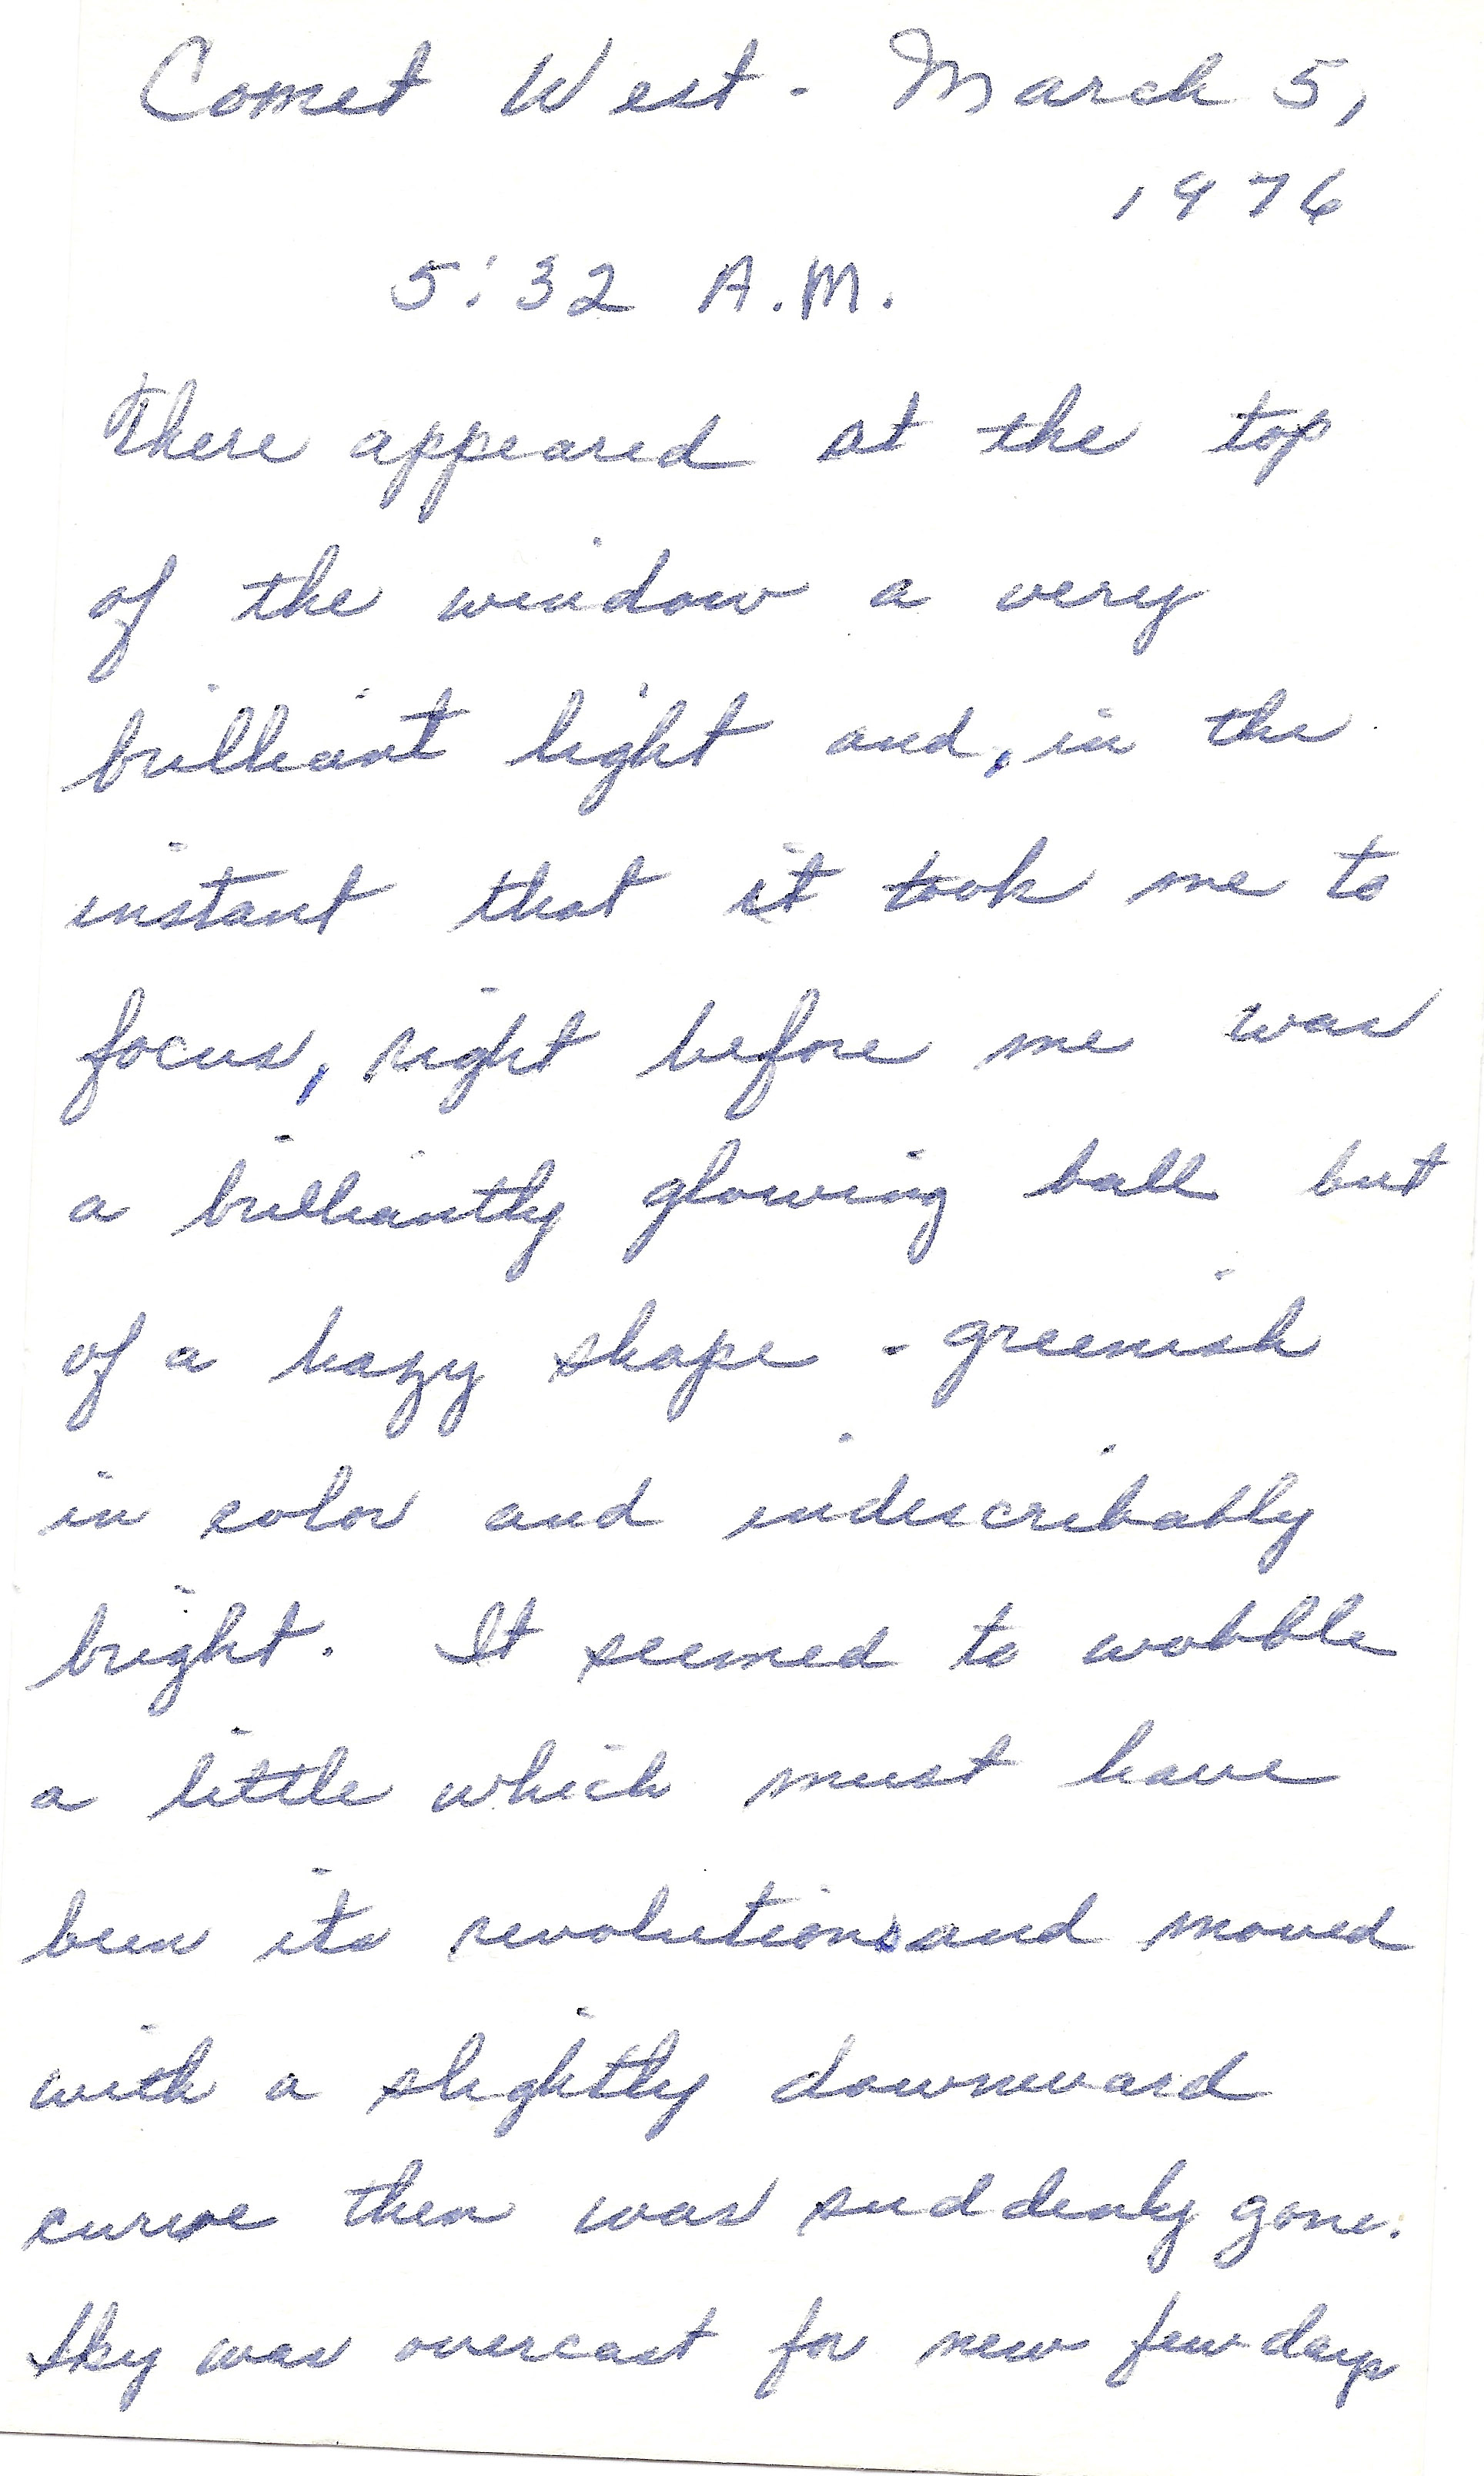 Comet West - March 5,
1976
5:32 A.M.
There appeared at the top
of the window a very
brilliant light and, in the
instant that it took me to
focus, right before me was
a brilliantly glowing ball but
of a hazy shape - greenish
in color and indescribably
bright. It seemed to wobble
a little which must have
been its revolutions and moved
with a slightly downward
curve then was suddenly gone.
Sky was overcast for new few days